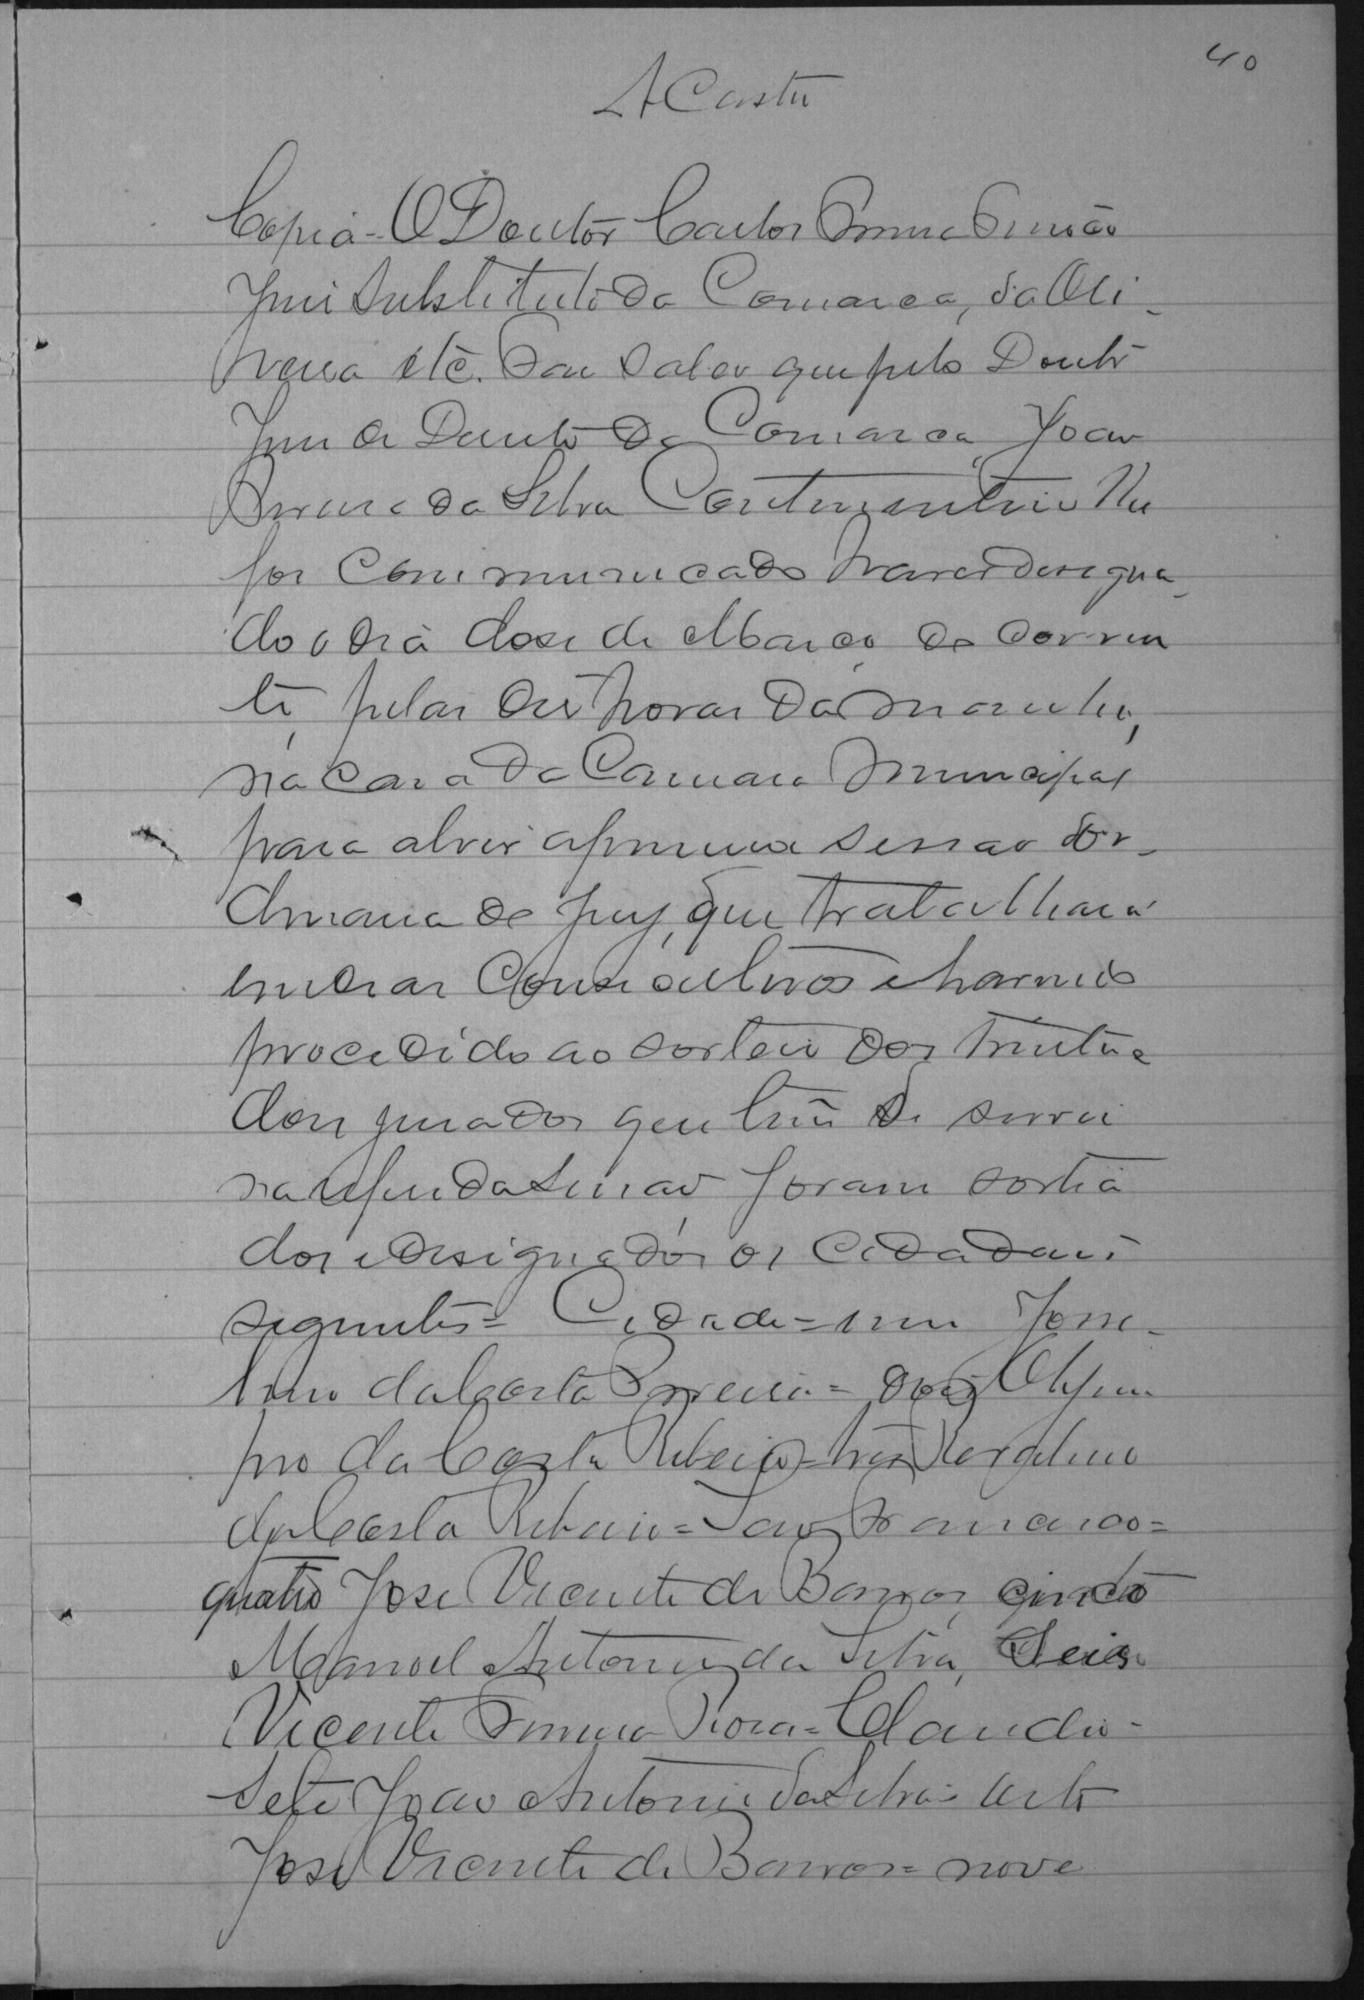 40
A Costa
Copia - O Doutor Carlos
Juis Substituto da Comarca, da Oli
veira etc. Faço saber que pelo Doutor
Juis de Direito da Comarca João
da Silva Me
foi communicado haver designa
do o dia dose de Março do corren
te, pelas des horas da manhã,
na casa da Camara Municipal
para abrir a primeira sessão or
dinaria do jury, que trabalhará
em dias consecutivos e havendo
procedido ao sorteio dos trinta e
dois jurados que têm de servir
na referida sessão foram sortia
dos e designados os cidadãos
seguintes = Cidade = um José
lino da Costa Pereira = dois Olym
pio da Costa Ribeiro = tres
da Costa Ribeiro = São Francisco =
quatro José Vicente de Barros, cinco
Manoel Antonio da Silva, Seis
Vicente Rosa = Claudio -
Sete João Antonio da Silva = oito
José Vicente de Barros = nove